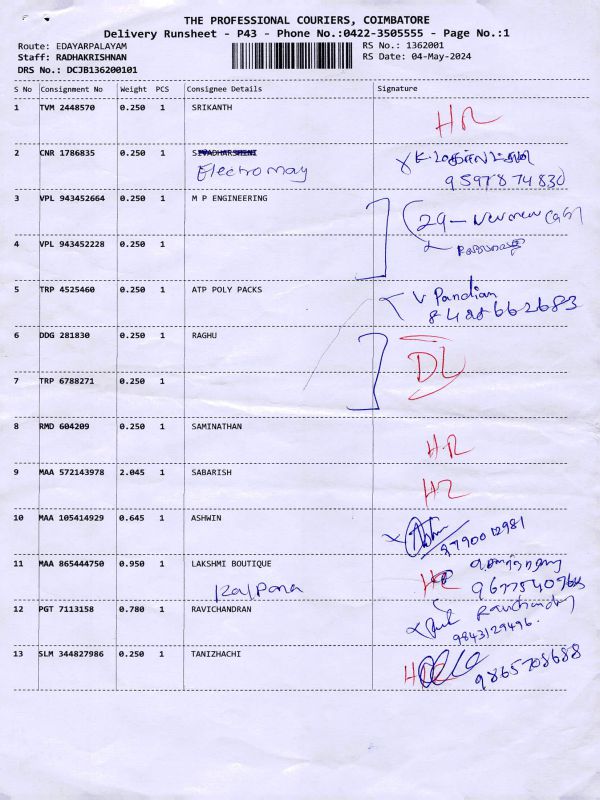 THE PROFESSIONAL COURIERS, COIMBATORE
Delivery Runsheet - P43 - Phone No.:0422-3505555 - Page No.:1
Route: EDAYARPALAYAM RS No.: 1362001
Staff: RADHAKRISHNAN RS Date: 04-May-2024
DRS No.: DCJB136200101
S No Consignment No Weight PCS Consignee Details Signature
1 TVM 2448570 0.250 1 SRIKANTH
2 CNR 1786835 0.250 1
Electro may
9597874830
3 VPL 943452664 0.250 1 M P ENGINEERING
29 -
4 VPL 943452228 0.250 1
5 TRP 4525460 0.250 1 ATP POLY PACKS V Pandian
6 DDG 281830 0.250 1 RAGHU
DL
7 TRP 6788271 0.250 1
8 RMD 604209 0.250 1 SAMINATHAN
9 MAA 572143978 2.045 1 SABARISH
10 MAA 105414929 0.645 1 ASHWIN
9790012981
11 MAA 865444750 0.950 1 LAKSHMI BOUTIQUE
Kalpana
12 PGT 7113158 0.780 1 RAVICHANDRAN
9843129496.
13 SLM 344827986 0.250 1 TANIZHACHI
9865708688